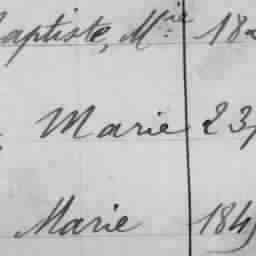 Baptiste, M.ie 18
Marie 23
Marie 184